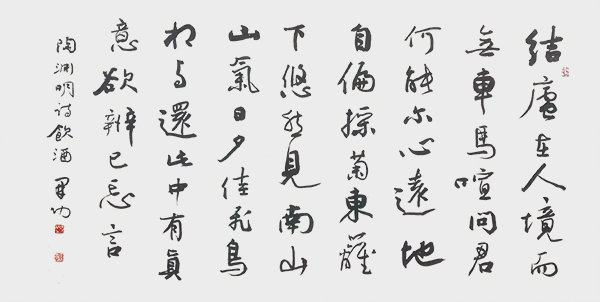 結廬在人境而
無車馬喧問君
何能尔心遠地
自偏採菊東籬
下悠然見南山
山氣日夕佳飛鳥
相与還此中有真
意欲辨已忘言
陶淵明詩飲酒